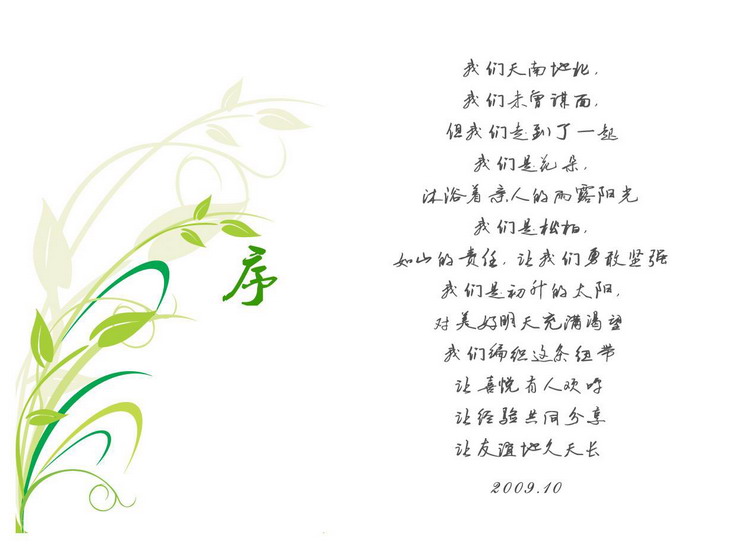 序
我们天南地北，
我们未曾谋面，
但我们走到了一起
我们是花朵，
沐浴着亲人的雨露阳光
我们是松柏，
如山的责任，让我们勇敢坚强
我们是初升的太阳，
对美好明天充满渴望
我们编织这条纽带
让喜悦有人欢呼
让经验共同分享
让友谊地久天长
2009.10